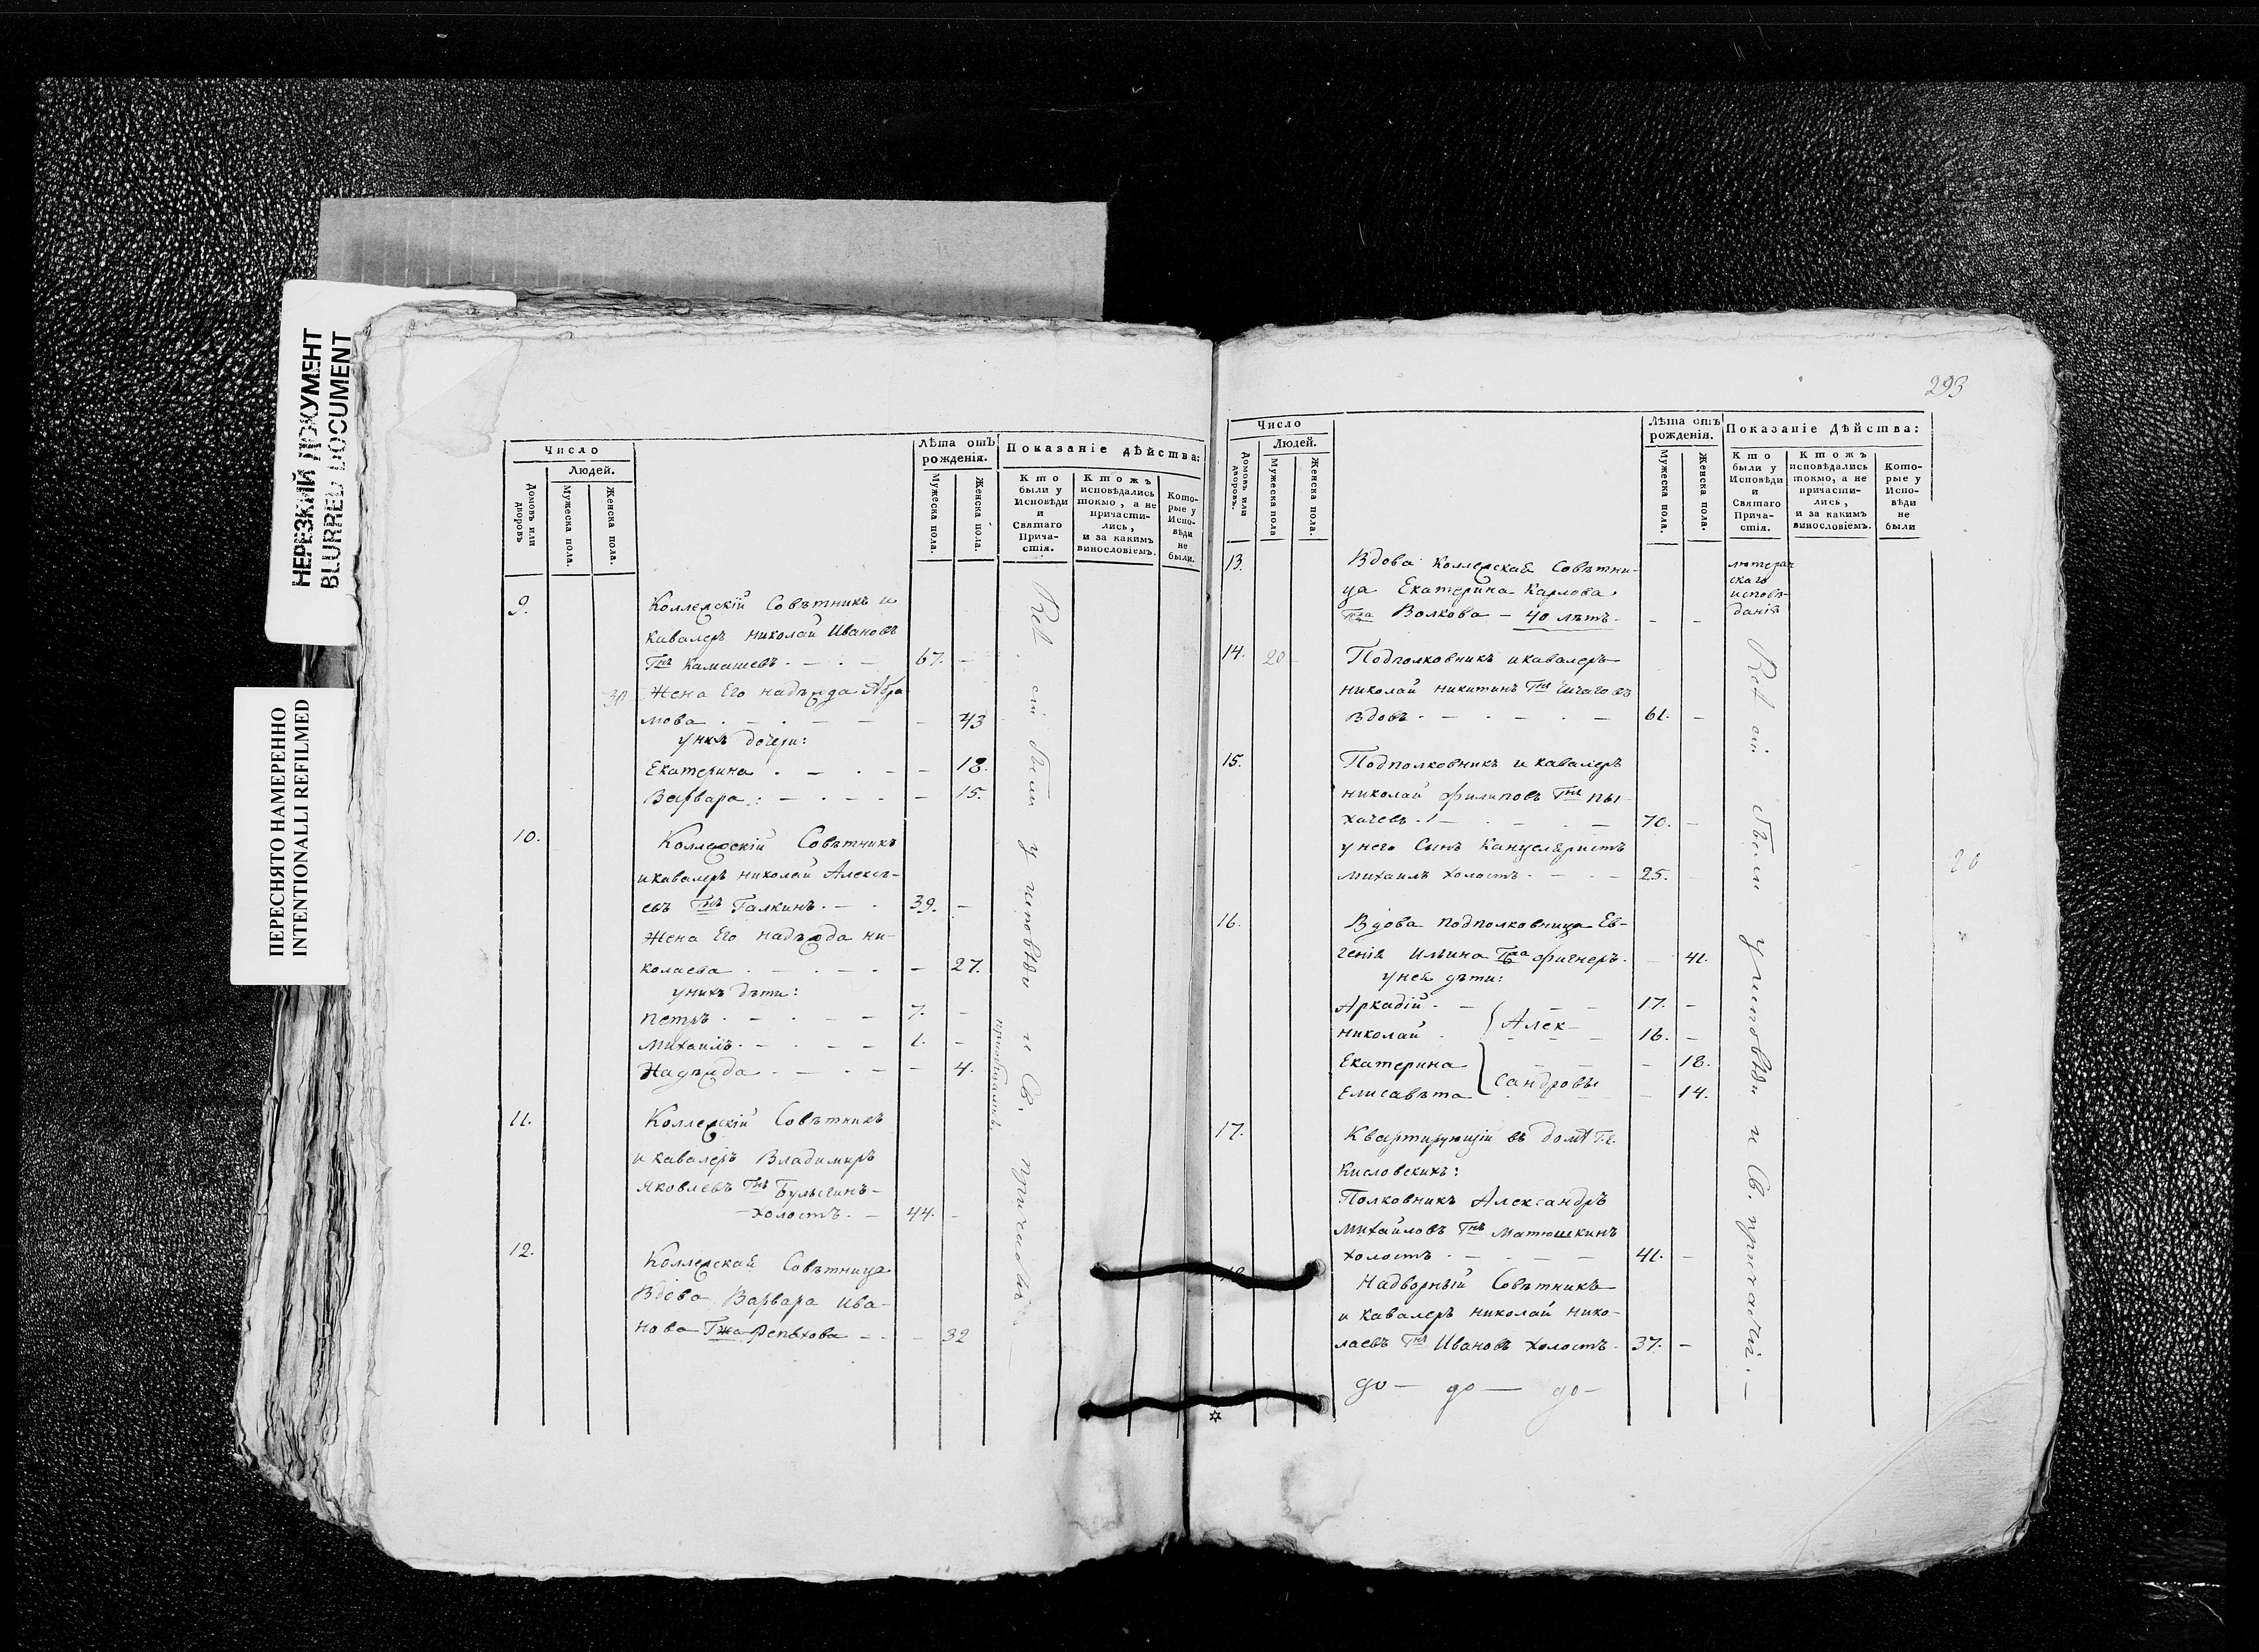 НЕРЕЗКИЙ ДОКУМЕНТ
BLURRED DOCUMENT
ПЕРЕСНЯТО НАМЕРЕННО
INTENTIONALLI REFILMED
Число
Людей.
Домовъ или дворовъ
Мужеска пола.
Женска пола.
Лѣта отъ рожденія.
Мужеска пола.
Женска пола.
Показаніе дѣйства:
Кто были у Исповѣди и Святаго Прича-стія.
Ктожъ исповѣдались токмо, а не причасти-лись, и за какимъ винословіемъ.
Кото-рые у Испо-вѣди не были.
9.
Коллежскій Совѣтникъ и
Кавалеръ Николай Ивановъ
Гнъ Камашевъ 67. –
30 Жена Его Надѣжда Абра
мова – 43
у нихъ дочери:
Екатерина – 18.
Варвара – 15.
10.
Коллежскій Совѣтникъ
и кавалеръ Николай Алексѣ-
евъ Гнъ Галкинъ 39. –
Жена Его Надѣжда Ни-
колаева – 27.
у нихъ дѣти:
Петръ 7. –
Михаилъ 1. –
Надѣжда – 4.
11.
Коллежскій Совѣтникъ
и кавалеръ Владимиръ
Яковлевъ Гнъ Булыгинъ
– холостъ 44. –
12.
Коллежская Совѣтница
Вдова Варвара Ива-
нова Гжа Репьхова – 32
Всѣ сіи были у исповѣди и Св. причастія
293
Число
Людей.
Домовъ или дворовъ.
Мужеска пола
Женска пола.
Лѣта отъ рожденія.
Мужеска пола.
Женска пола.
Показаніе Дѣйства:
Кто были у Исповѣди и Святаго Прича-стія.
Ктожъ исповѣдались токмо, а не причасти-лись, и за какимъ винословіемъ.
Кото-рые у Испо-вѣди не были
13.
Вдова Коллежская Совѣтни-
ца Екатерина Карлова
Гжа Волкова – 40 лѣтъ – –
лютеран
скаго
исповѣ-
данія
14. 20
Подполковникъ и кавалеръ
Николай Никитинъ Гнъ Чичаговъ
вдовъ 61. –
15.
Подполковникъ и кавалеръ
Николай Филиповъ Гнъ Пы-
хачевъ 70. –
у него Сынъ Канцеляристъ
Михаилъ холостъ 25.
16.
Вдова Подполковница Ев-
генія Ильина Гжа Фигнеръ – 41.
у ней дѣти:
Аркадій 17. –
Николай Алек- 16. –
Екатерина – 18.
Елисавѣта сандровы – 14.
17.
Квартирующій въ домѣ Г.г.
Кисловскихъ:
Полковникъ Александръ
Михайловъ Гнъ Матюшкинъ
холостъ 41. –
Надворный Совѣтникъ
и кавалеръ Николай Нико-
лаевъ Гнъ Ивановъ холостъ 37. –
до – до – до –
Всѣ сіи были у исповѣди и Св. причастія. –
20